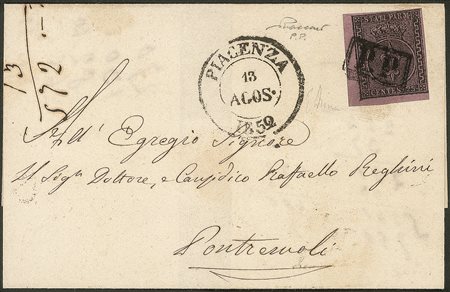 P.P.
STATI PARM.
P.P.
CENTES. 25
PIACENZA
13
AGOS.
1852
13
572
All' Egregio Signore
Il Sig.r Dottore, e Causidico Raffaello Reghini
Pontremoli